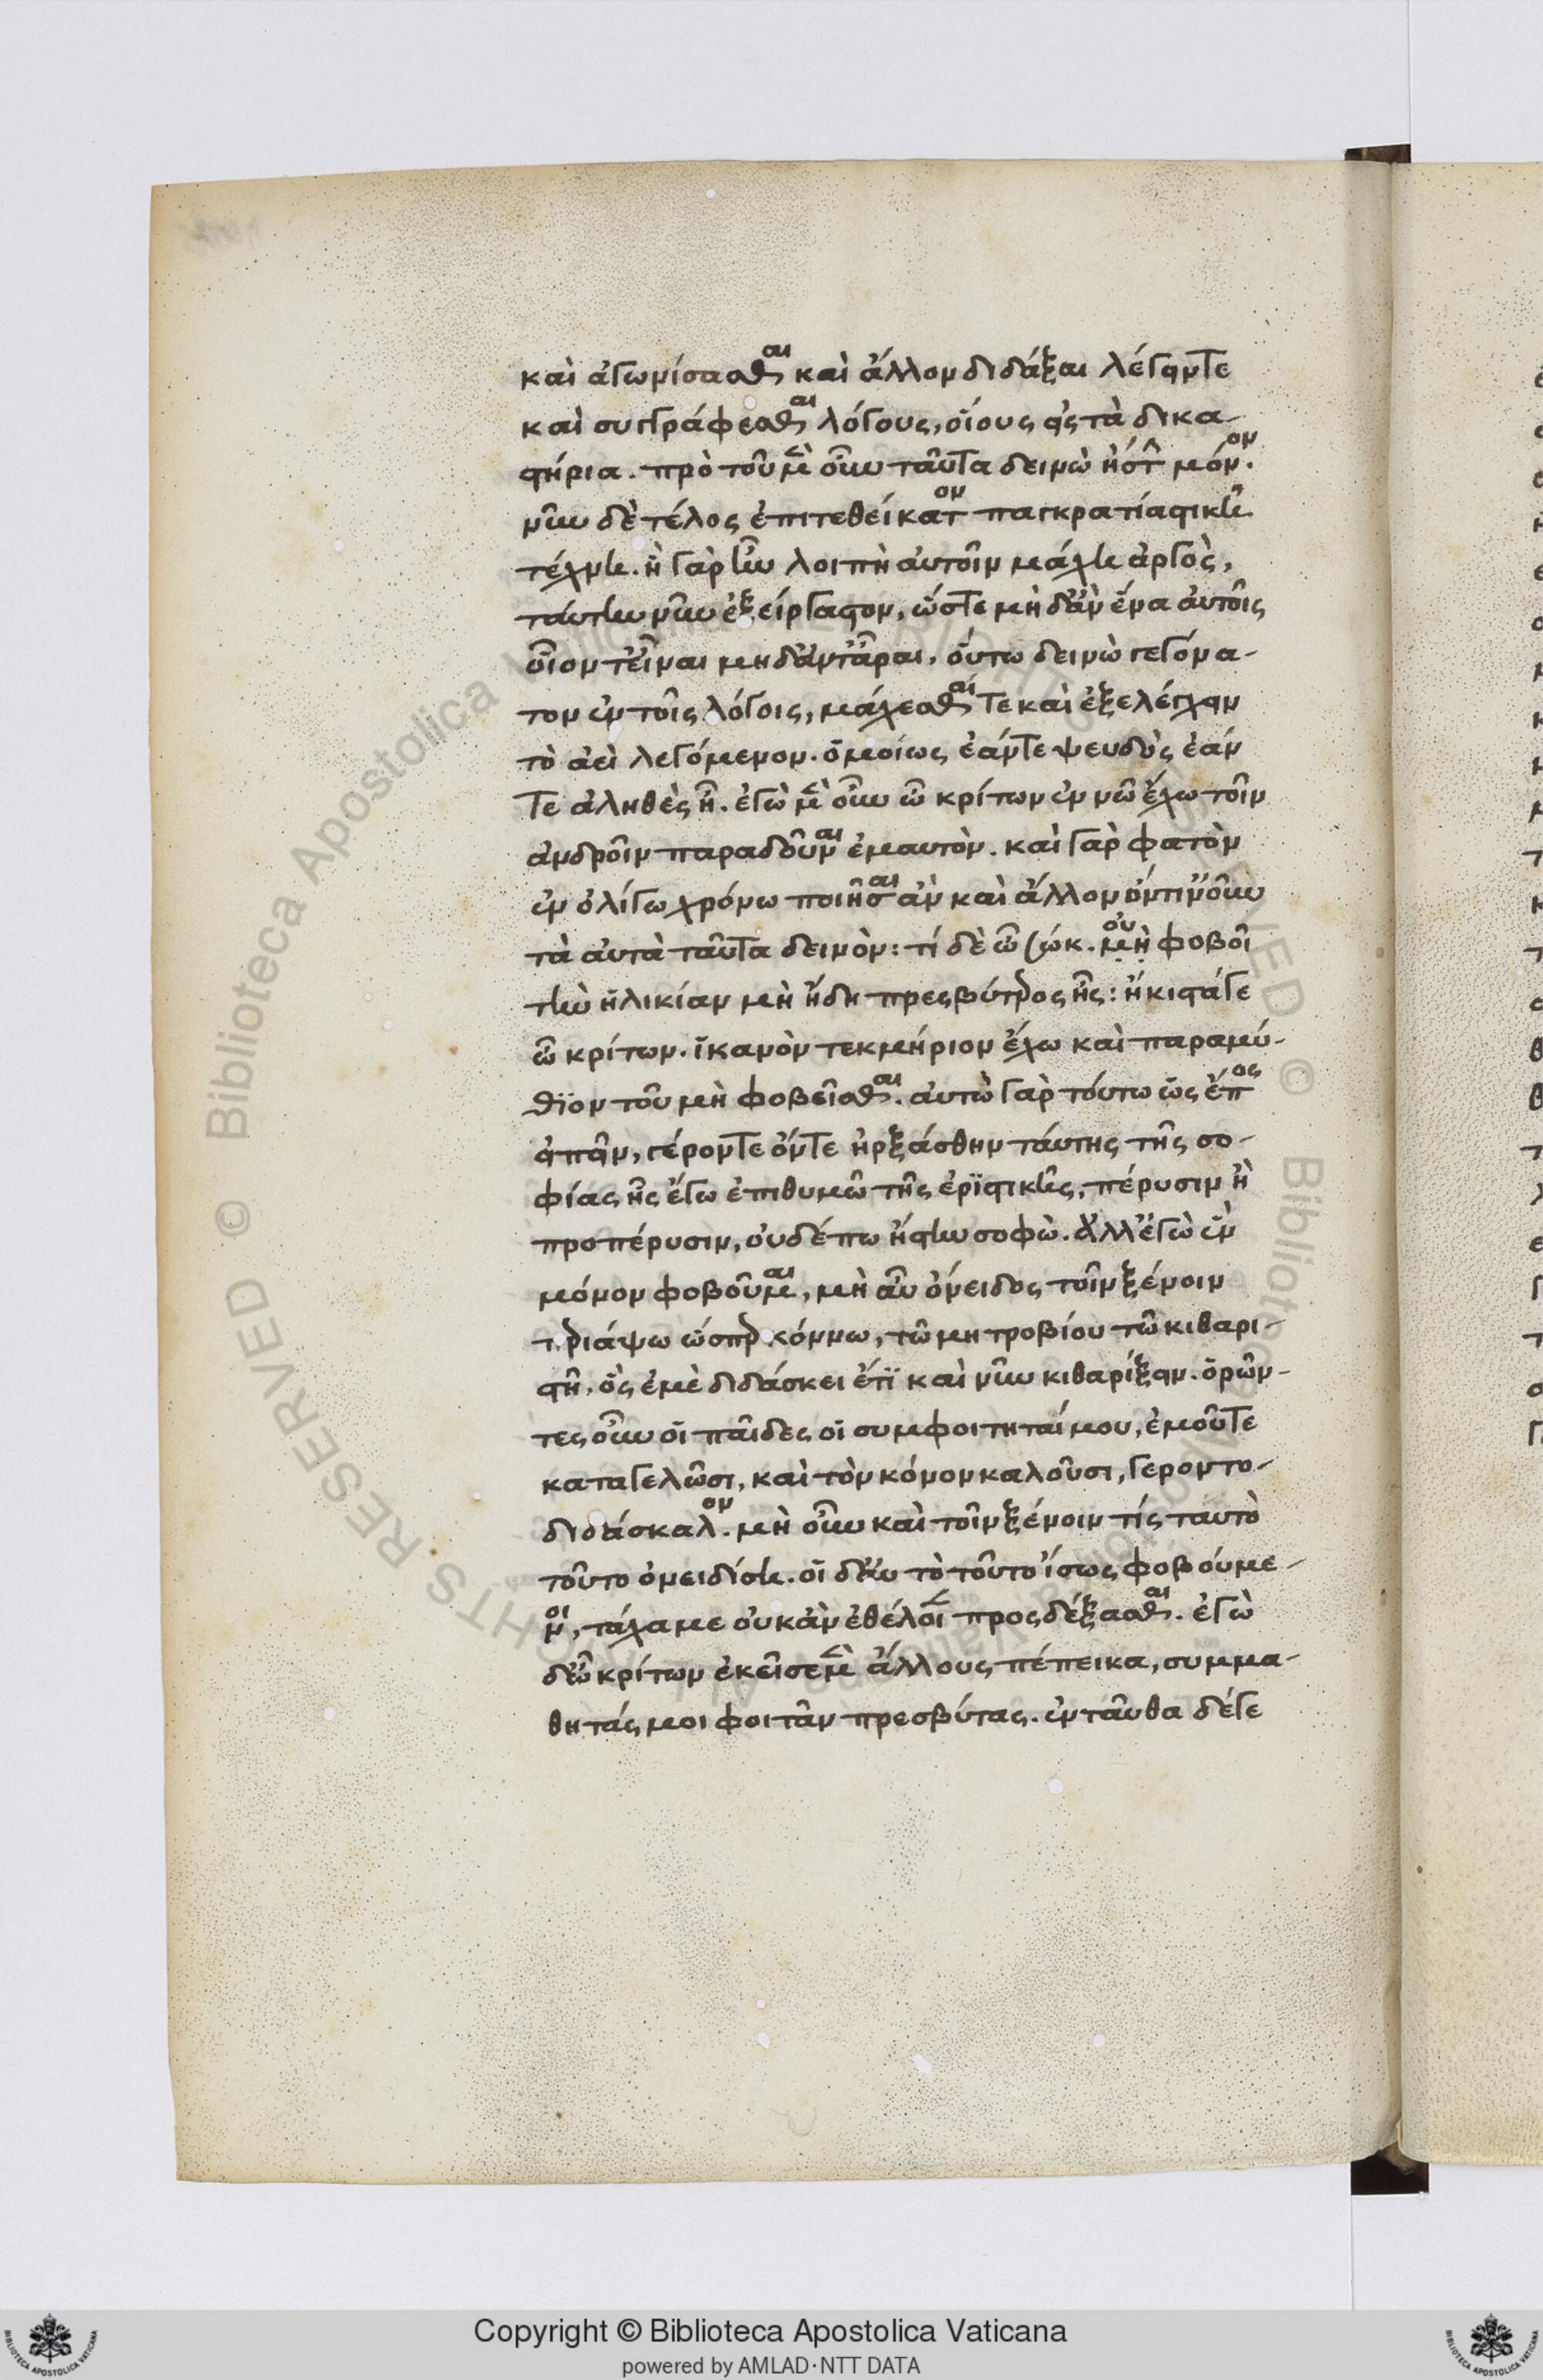 καὶ ἀγωνίσασθαι καὶ ἄλλον διδάξαι λέγειν τε
καὶ συγγράφεσθαι λόγους, οἵους εἰς τὰ δικα-
στήρια. πρὸ τοῦ μὲν οὖν ταῦτα δεινὼ ἤστην μόνον.
νῦν δὲ τέλος ἐπιτεθείκατον παγκρατιαστικῇ
τέχνῃ. ἣ γὰρ ἦν λοιπὴ αὐτοῖν μάχη ἀργὸς,
ταύτην νῦν ἐξείργασον, ὥστε μὴ δ' ἂν ἕνα αὐτοῖς
οἷον τ' εἶναι μηδ' ἀντᾶραι. οὕτω δεινὼ γεγόνα-
τον ἐν τοῖς λόγοις, μάχεσθαί τε καὶ ἐξελέγχειν
τὸ ἀεὶ λεγόμενον. ὁμοίως ἐάν τε ψευδὺς ἐάν
τε ἀληθὲς ᾖ. ἐγὼ μὲν οὖν ὦ κρίτων ἐν νῷ ἔχω τοῖν
ἀνδροῖν παραδοῦναι ἐμαυτὸν. καὶ γὰρ φατὸν
ἐν ὀλίγω χρόνω ποιῆσαι ἂν καὶ ἄλλον ὁντιν' οὖν
τὰ αὐτὰ ταῦτα δεινὸν: τί δὲ ὦ σώκ. οὐ μὴ φοβοῖ
τὴν ἡλικίαν μὴ ἤδη πρεσβύτερος ᾖς: ἥκιστά γε
ὦ κρίτων. ἱκανὸν τεκμήριον ἔχω καὶ παραμύ-
θϊον τοῦ μὴ φοβεῖσθαι. αὐτὼ γὰρ τούτω ὡς ἔπος
εἰπεῖν, γέροντε ὄντε ἠρξάσθην ταύτης τῆς σο-
φίας ἧς ἔγω ἐπιθυμῶ τῆς ἐρϊστικῆς, πέρυσιν ἢ
προπέρυσιν, οὐδέπω ἤστην σοφὼ. ἀλλ' ἐγὼ ἓν
μόνον φοβοῦμαι, μὴ αὖ ὄνειδος τοῖν ξένοιν
περιάψω ὥσπερ κόννω, τῶ μητροβίου τῶ κιθαρι-
στῆ, ὃς ἐμὲ διδάσκει ἔτϊ καὶ νῦν κιθαρίζειν. ὁρῶν-
τες οὖν οἱ παῖδες οἱ συμφοιτηταί μου, ἐμοῦ τε
καταγελῶσι, καὶ τὸν κόνον καλοῦσι, γεροντο-
διδάσκαλον. μὴ οὖν καὶ τοῖν ξένοιν τίς ταυτὸ
τοῦτο ὀνειδίσῃ. οἱ δ' αὖ τὸ τοῦτο ἴσως φοβούμε-
νοι, τάχα με οὐκ ἂν ἐθέλοιεν προσδέξασθαι. ἐγὼ
δ' ὦ κρίτων ἐκεῖσε μὲν ἄλλους πέπεικα, συμμα-
θητάς μοι φοιτᾶν πρεσβύτας. ἐνταῦθα δέ γε
Copyright © Biblioteca Apostolica Vaticana
powered by AMLAD·NTT DATA